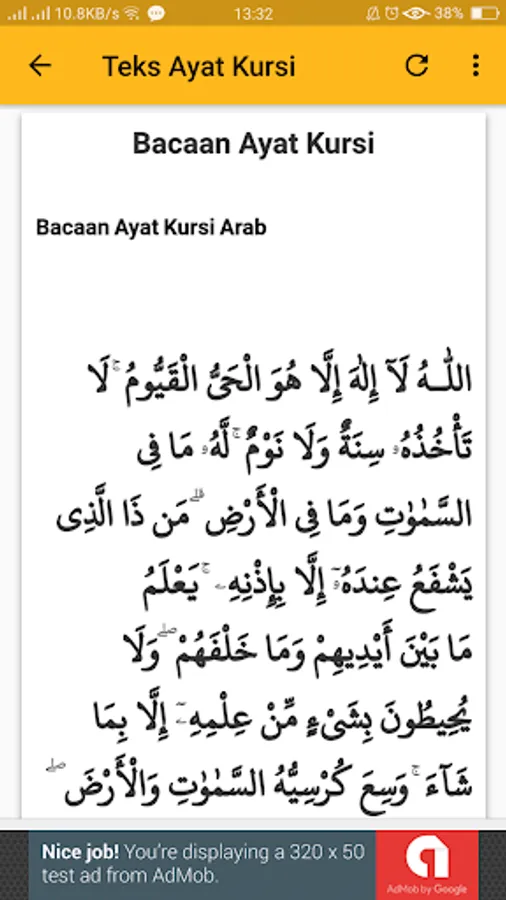 10.8KB/s 13:32 38%
Teks Ayat Kursi
Bacaan Ayat Kursi
Bacaan Ayat Kursi Arab
اللَّـهُ لَآ إِلٰهَ إِلَّا هُوَ الْحَيُّ الْقَيُّومُ ۚ لَا
تَأْخُذُهُۥ سِنَةٌ وَلَا نَوْمٌ ۚ لَّهُۥ مَا فِى
السَّمٰوٰتِ وَمَا فِى الْأَرْضِ ۗ مَن ذَا الَّذِى
يَشْفَعُ عِندَهُۥٓ إِلَّا بِإِذْنِهِۦ ۚ يَعْلَمُ
مَا بَيْنَ أَيْدِيهِمْ وَمَا خَلْفَهُمْ ۖ وَلَا
يُحِيطُونَ بِشَىْءٍ مِّنْ عِلْمِهِۦٓ إِلَّا بِمَا
شَآءَ ۚ وَسِعَ كُرْسِيُّهُ السَّمٰوٰتِ وَالْأَرْضَ ۖ
Nice job! You're displaying a 320 x 50
test ad from AdMob.
AdMob by Google